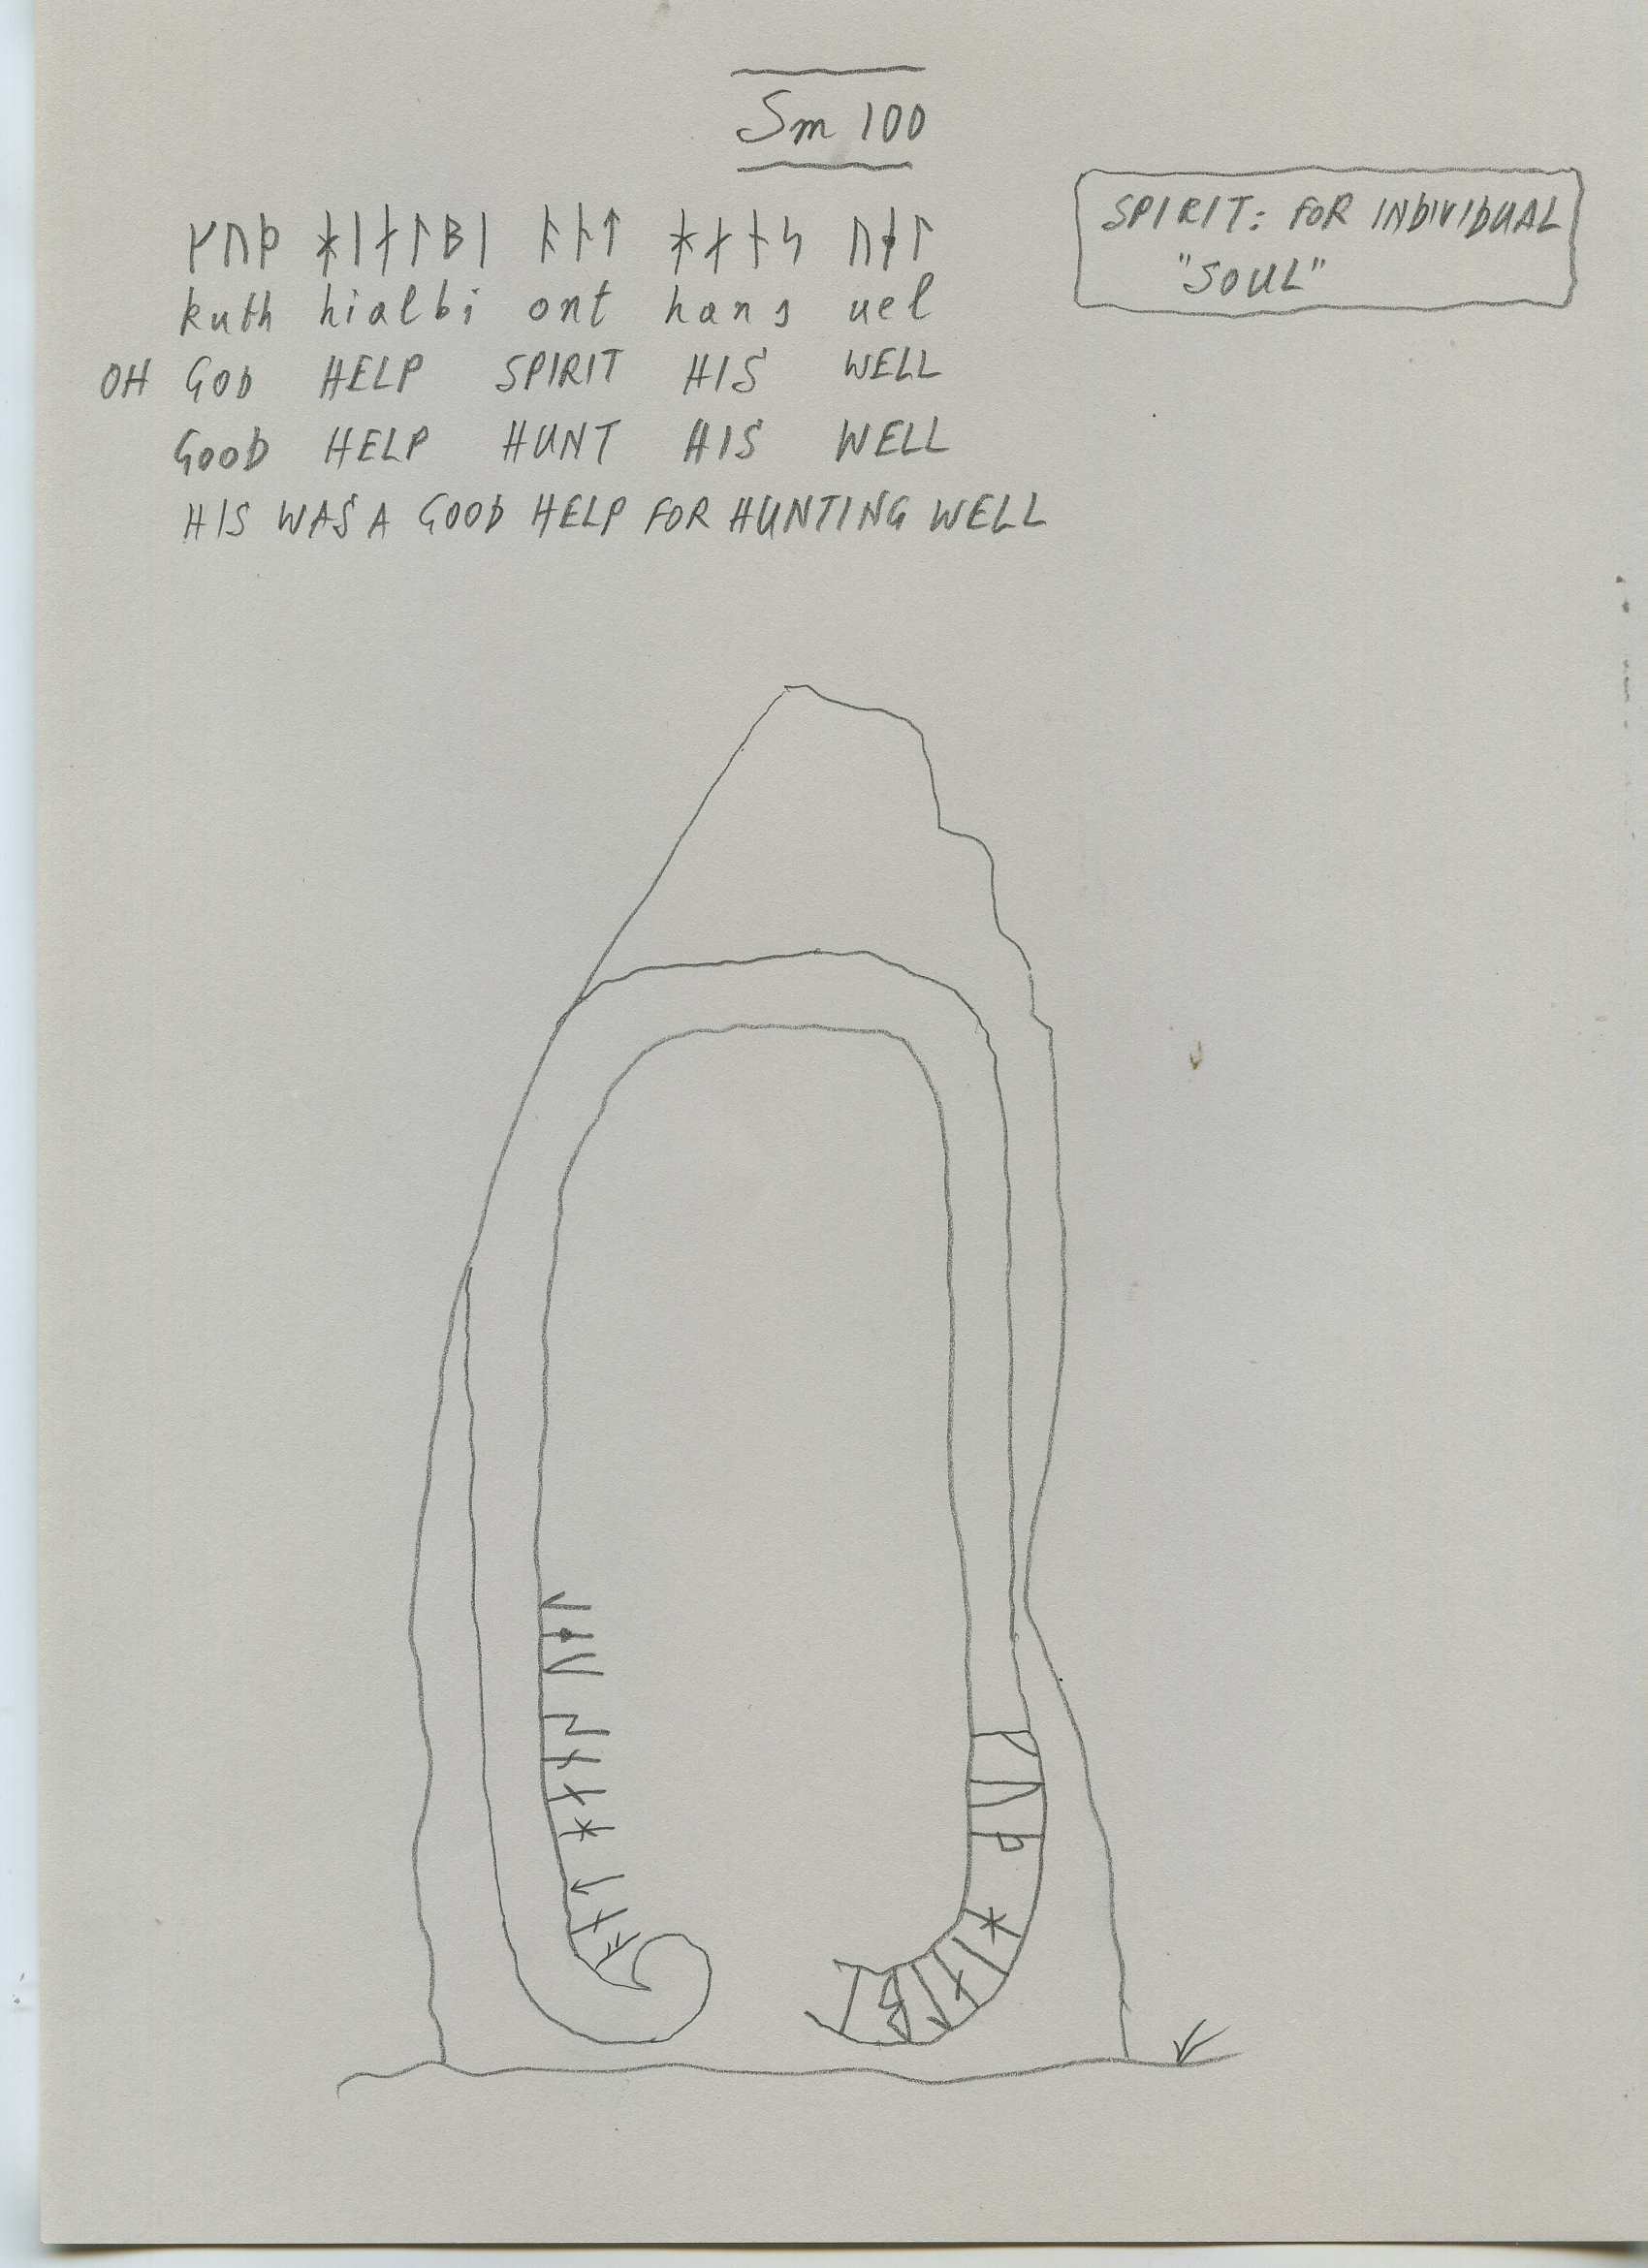 Sm 100
ᚴᚢᚦ ᚼᛁᛅᛚᛒᛁ ᚬᚾᛏ ᚼᛅᚾᛋ ᚢᛂᛚ
kuth hialbi ont hans uel
OH GOD HELP SPIRIT HIS WELL
GOOD HELP HUNT HIS WELL
HIS WAS A GOOD HELP FOR HUNTING WELL
SPIRIT: FOR INDIVIDUAL
"SOUL"
ᚴᚢᚦ ᚼᛁᛅᛚᛒᛁ
ᚬᚾᛏ ᚼᛅᚾᛋ ᚢᛂᛚ